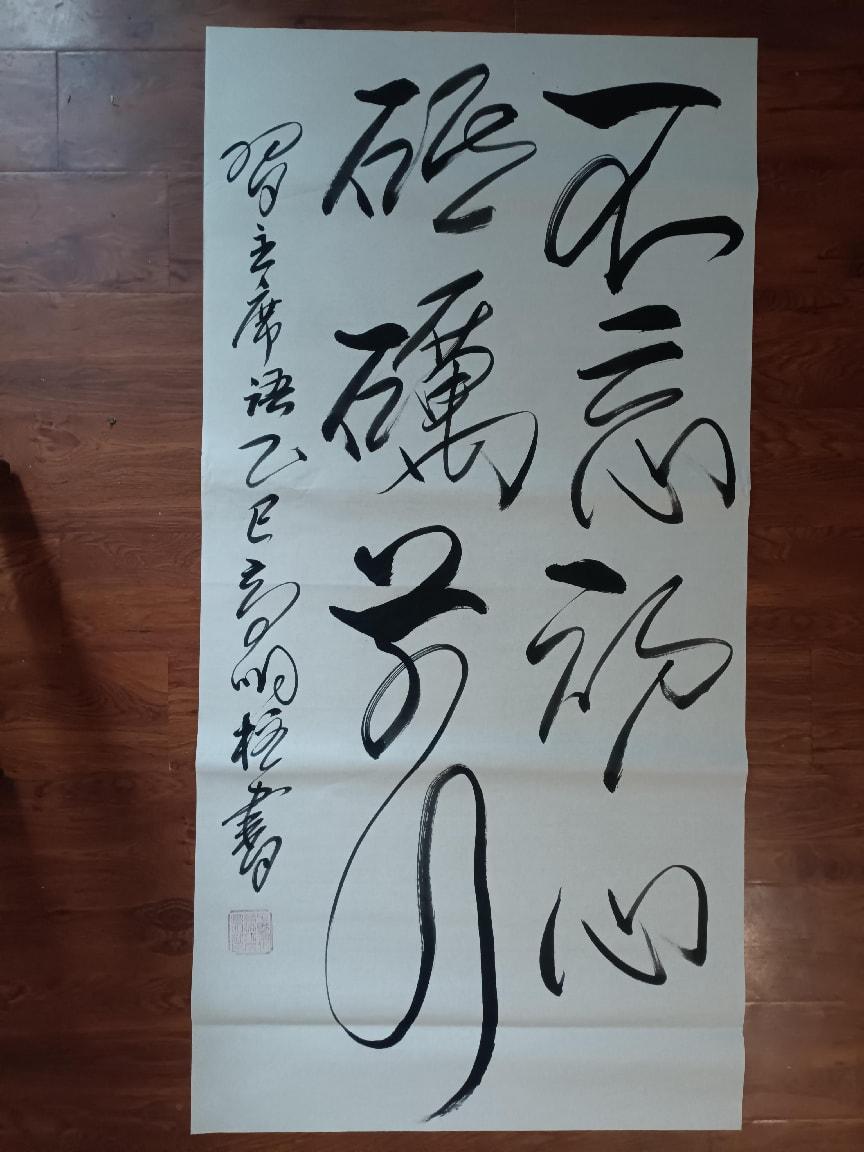 不忘初心
砥砺前行
习主席语乙巳高明柱書